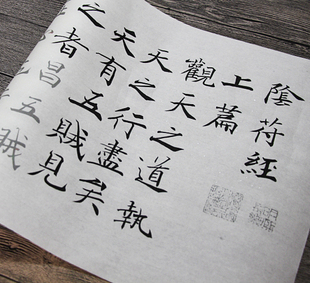 陰苻經
上篇
觀天之道執
天之行盡矣
天有五賊見
之者昌五賊